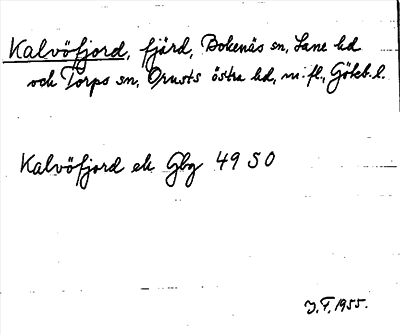 Kalvöfjord, fjärd, Bokenäs sn, Lane hd
och Torps sn, Orusts östra hd, m.fl., Göteb. l.
Kalvöfjord ek Gbg 49 SO
J.F. 1955.